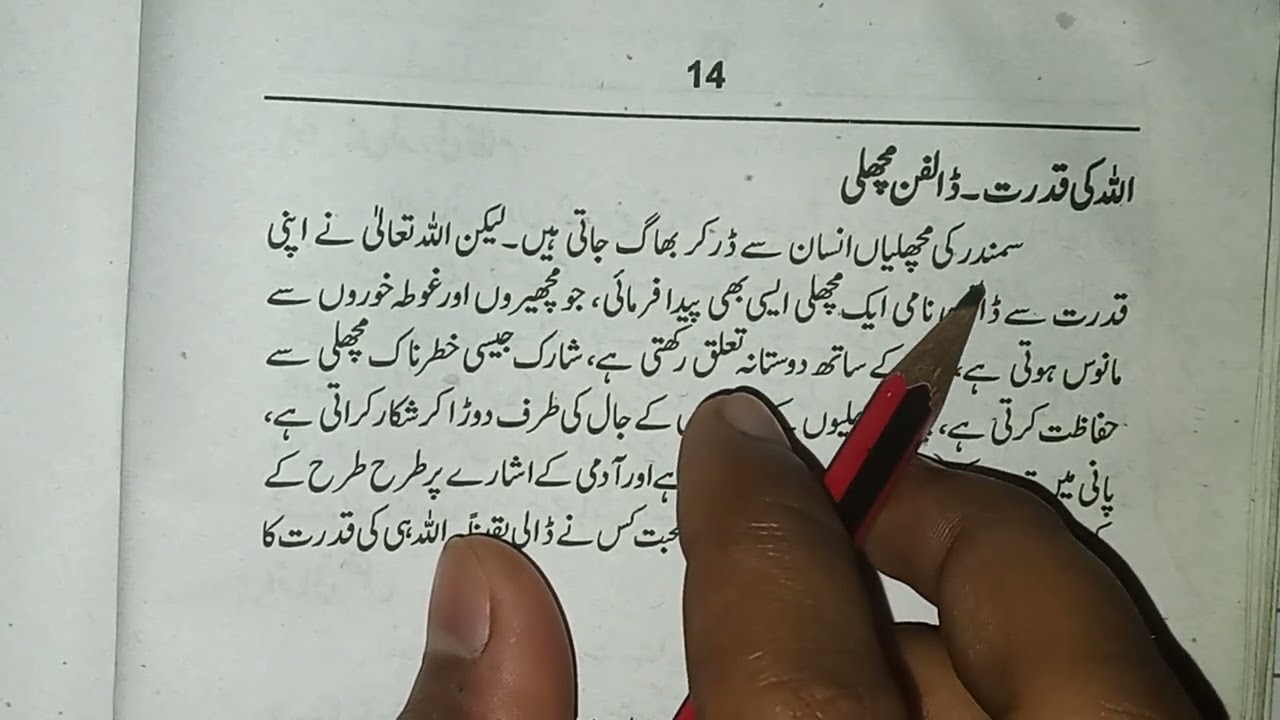 14
اللہ کی قدرت۔ ڈالفن مچھلی
سمندر کی مچھلیاں انسان سے ڈر کر بھاگ جاتی ہیں۔ لیکن اللہ تعالیٰ نے اپنی
قدرت سے نامی ایک مچھلی ایسی بھی پیدا فرمائی، جو مچھیروں اور غوطہ خوروں سے
مانوس ہوتی ہے، کے ساتھ دوستانہ تعلق رکھتی ہے، شارک جیسی خطرناک مچھلی سے
حفاظت کرتی ہے، کے جال کی طرف دوڑا کر شکار کراتی ہے،
پانی میں ہے اور آدمی کے اشارے پر طرح طرح کے
کس نے ڈالی یقیناً اللہ ہی کی قدرت کا